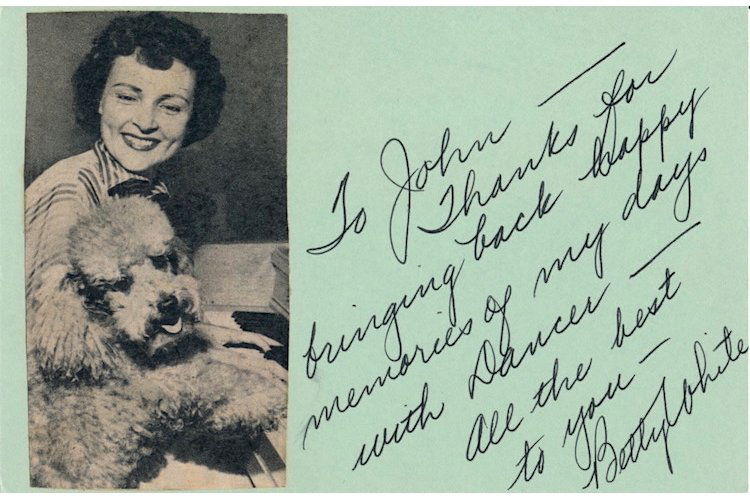 To John —
Thanks for
bringing back happy
memories of my days
with Dancer —
All the best
to you —
Betty White